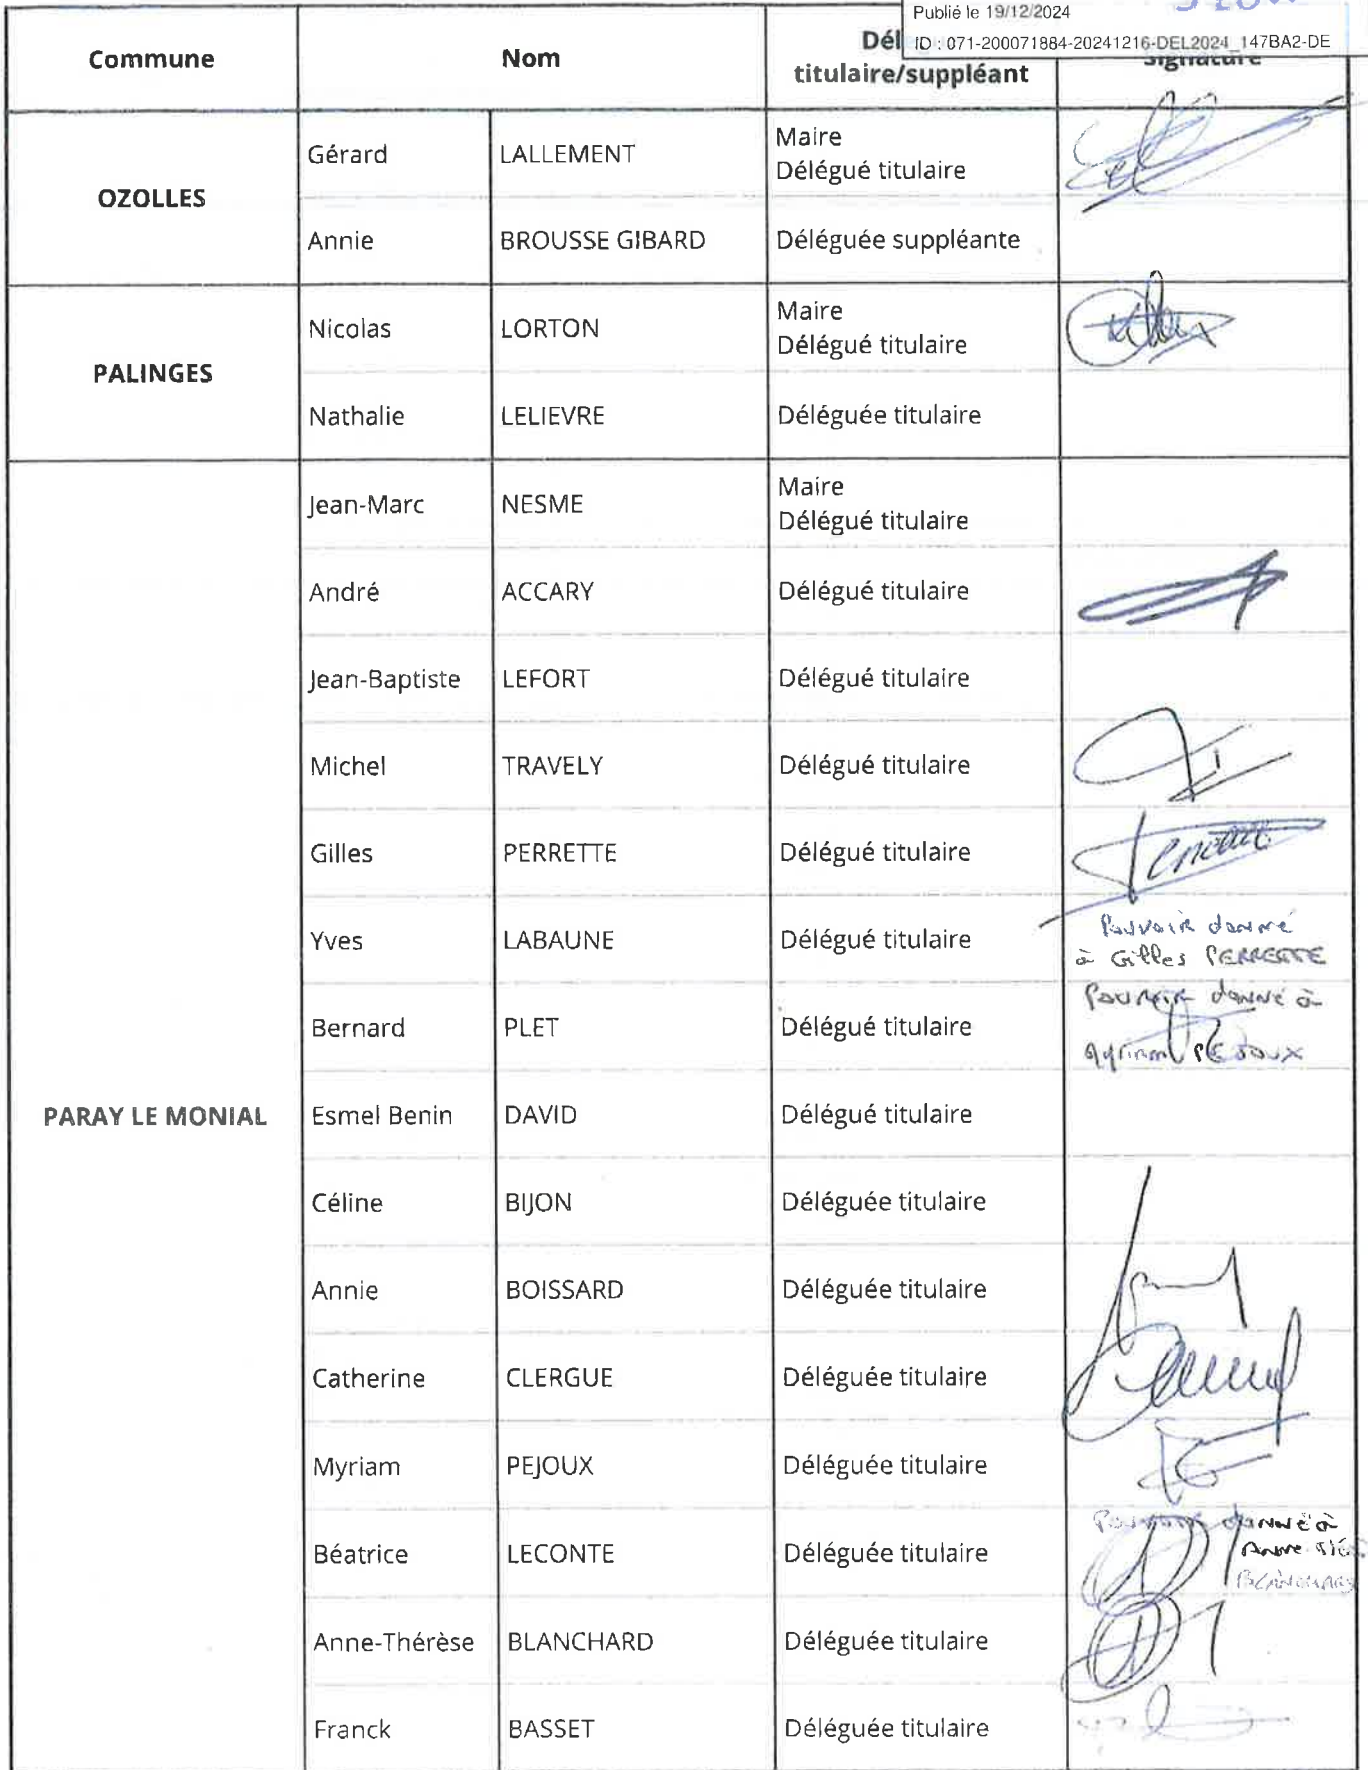 Publié le 19/12/2024
ID : 071-200071884-20241216-DEL2024_147BA2-DE
Commune Nom Dél titulaire/suppléant Signature
OZOLLES
Gérard LALLEMENT Maire
Délégué titulaire
Annie BROUSSE GIBARD Déléguée suppléante
PALINGES
Nicolas LORTON Maire
Délégué titulaire
Nathalie LELIEVRE Déléguée titulaire
PARAY LE MONIAL
Jean-Marc NESME Maire
Délégué titulaire
André ACCARY Délégué titulaire
Jean-Baptiste LEFORT Délégué titulaire
Michel TRAVELY Délégué titulaire
Gilles PERRETTE Délégué titulaire
Yves LABAUNE Délégué titulaire Pouvoir donné
à Gilles PERRETTE
Bernard PLET Délégué titulaire Pouvoir donné à
Myriam PEJOUX
Esmel Benin DAVID Délégué titulaire
Céline BIJON Déléguée titulaire
Annie BOISSARD Déléguée titulaire
Catherine CLERGUE Déléguée titulaire
Myriam PEJOUX Déléguée titulaire
Béatrice LECONTE Déléguée titulaire Pouvoir donné à
Anne
BLANCHARD
Anne-Thérèse BLANCHARD Déléguée titulaire
Franck BASSET Déléguée titulaire